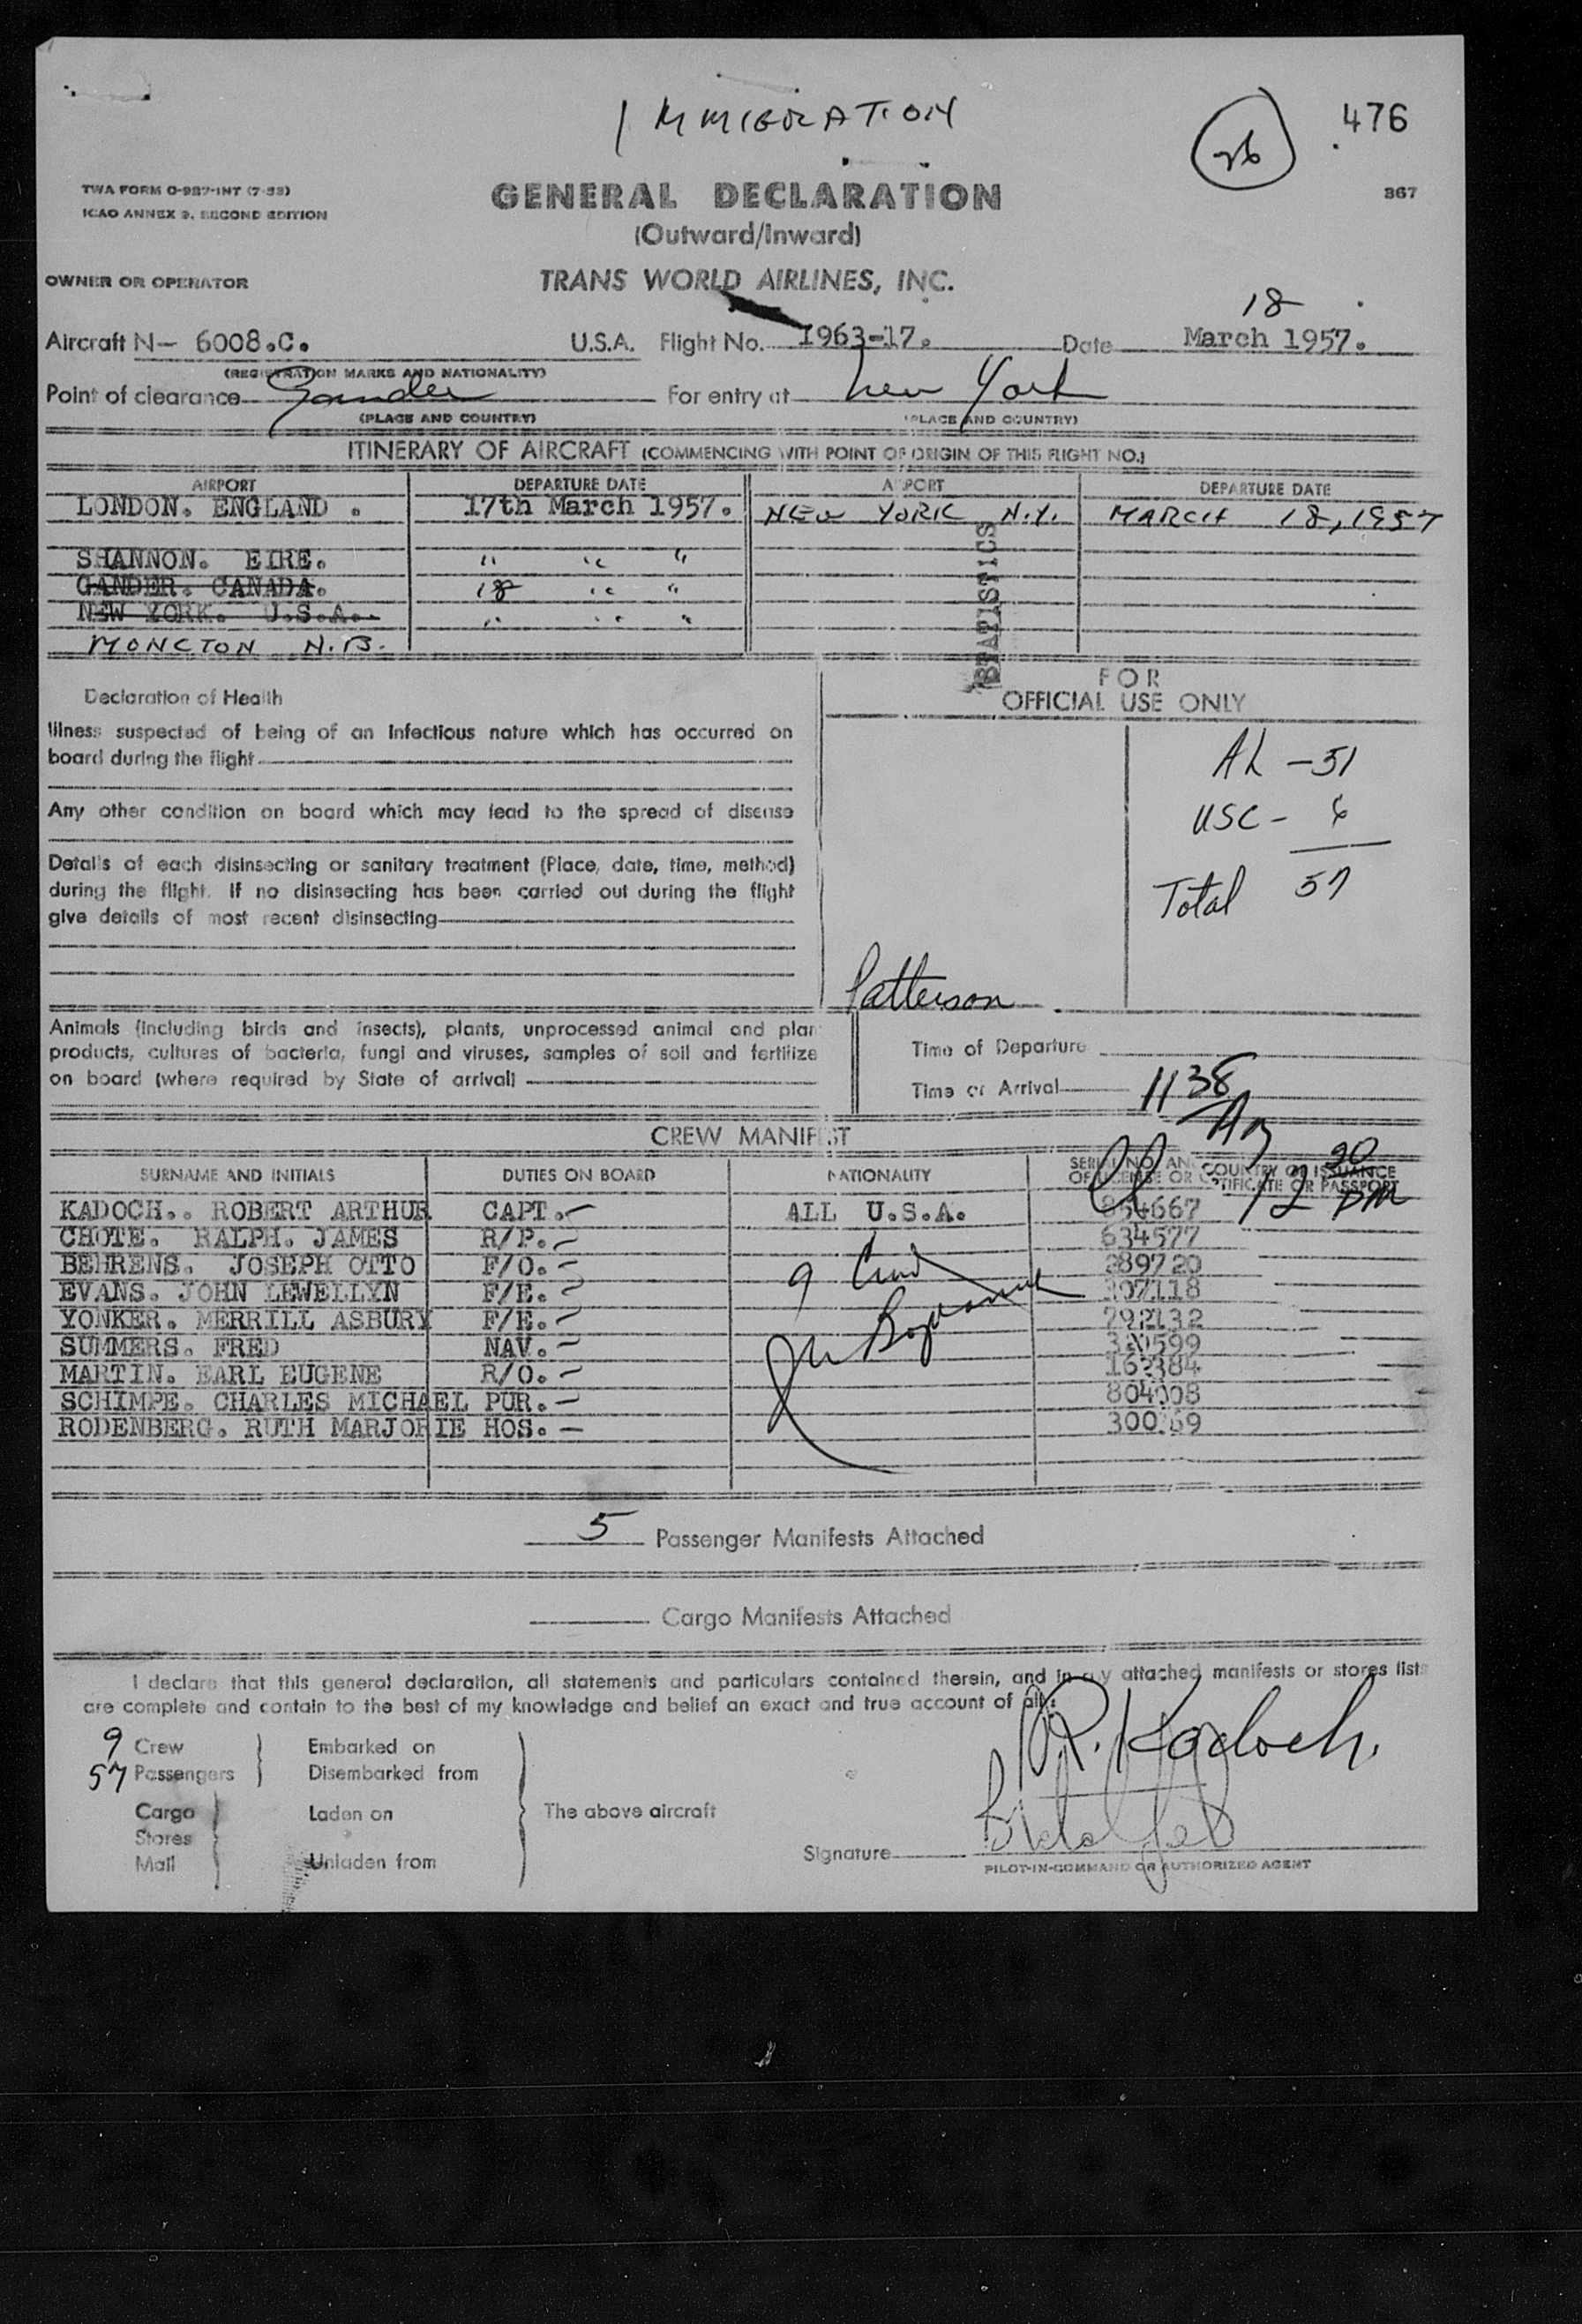 IMMIGRATION
26
476
TWA FORM O-987-INT (7-53)
ICAO ANNEX 9, SECOND EDITION
GENERAL DECLARATION
367
(Outward/Inward)
OWNER OR OPERATOR
TRANS WORLD AIRLINES, INC.
18
Aircraft N- 6008.C. U.S.A. Flight No. 1963-17. Date March 1957.
(REGISTRATION MARKS AND NATIONALITY)
Point of clearance Gander For entry at New York
(PLACE AND COUNTRY) (PLACE AND COUNTRY)
ITINERARY OF AIRCRAFT (COMMENCING WITH POINT OF ORIGIN OF THIS FLIGHT NO.)
AIRPORT DEPARTURE DATE AIRPORT DEPARTURE DATE
LONDON. ENGLAND . 17th March 1957. NEW YORK N.Y. MARCH 18, 1957
SHANNON. EIRE. " " "
GANDER. CANADA. 18 " "
NEW YORK. U.S.A. " " "
MONCTON N.B.
STATISTICS
FOR
OFFICIAL USE ONLY
Declaration of Health
Illness suspected of being of an infectious nature which has occurred on
board during the flight
Any other condition on board which may lead to the spread of disease
Details of each disinsecting or sanitary treatment (Place, date, time, method)
during the flight. If no disinsecting has been carried out during the flight
give details of most recent disinsecting
AL - 51
USC - 6
Total 57
Patterson
Animals (including birds and insects), plants, unprocessed animal and plan
products, cultures of bacteria, fungi and viruses, samples of soil and fertilize
on board (where required by State of arrival)
Time of Departure
Time of Arrival 1138
AM
12 30 PM
CREW MANIFEST
SURNAME AND INITIALS DUTIES ON BOARD NATIONALITY SERIAL NO. AND COUNTRY OF ISSUANCE
OF LICENSE OR CERTIFICATE OR PASSPORT
KADOCH.. ROBERT ARTHUR CAPT. ALL U.S.A. 854667
CHOTE. RALPH. JAMES R/P. 634577
BEHRENS. JOSEPH OTTO F/O. 289720
EVANS. JOHN LEWELLYN F/E. 307118
YONKER. MERRILL ASBURY F/E. 792132
SUMMERS. FRED NAV. 320599
MARTIN. EARL EUGENE R/O. 162384
SCHIMPE. CHARLES MICHAEL PUR. 804008
RODENBERG. RUTH MARJORIE HOS.
9
5 Passenger Manifests Attached
Cargo Manifests Attached
I declare that this general declaration, all statements and particulars contained therein, and in any attached manifests or stores lists
are complete and contain to the best of my knowledge and belief an exact and true account of all:
9 Crew Embarked on
57 Passengers Disembarked from
Cargo Laden on The above aircraft
Stores
Mail Unladen from
R. Kadoch.
Signature
PILOT-IN-COMMAND OR AUTHORIZED AGENT